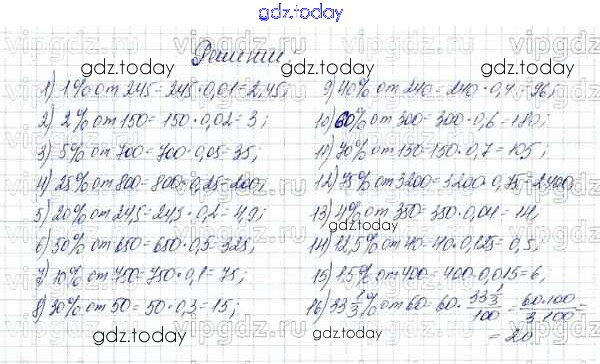 gdz.today
Решение:
1) 1% от 245 = 245 · 0,01 = 2,45;
2) 2% от 150 = 150 · 0,02 = 3;
3) 5% от 700 = 700 · 0,05 = 35;
4) 25% от 800 = 800 · 0,25 = 200;
5) 20% от 24,5 = 24,5 · 0,2 = 4,9;
6) 50% от 650 = 650 · 0,5 = 325;
7) 10% от 750 = 750 · 0,1 = 75;
8) 30% от 50 = 50 · 0,3 = 15;
9) 40% от 240 = 240 · 0,4 = 96;
10) 60% от 300 = 300 · 0,6 = 180;
11) 70% от 150 = 150 · 0,7 = 105;
12) 75% от 3200 = 3200 · 0,75 = 2400;
13) 4% от 350 = 350 · 0,04 = 14;
14) 12,5% от 40 = 40 · 0,125 = 0,5;
15) 1,5% от 400 = 400 · 0,015 = 6;
16) 33 1/3 % от 60 = 60 · 33 1/3 / 100 = 60·100 / 3·100 =
= 20
gdz.today
gdz.today
gdz.today
gdz.today
gdz.today
gdz.today
vipgdz
vipgdz
vipgdz
vipgdz